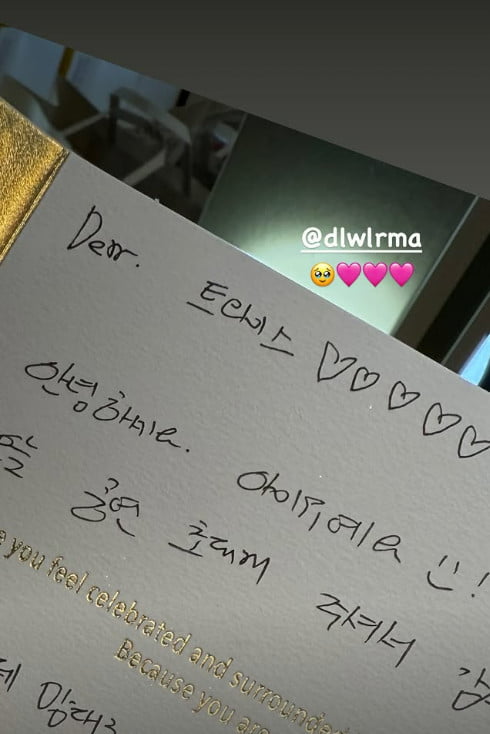 @dlwlrma
🥹🩷🩷🩷
Dear.
트와이스 ♡♡♡♡♡
안녕하세요. 아이유예요 :)!
공연 초대해 주셔서 감
you feel celebrated and surrounded
Because you are